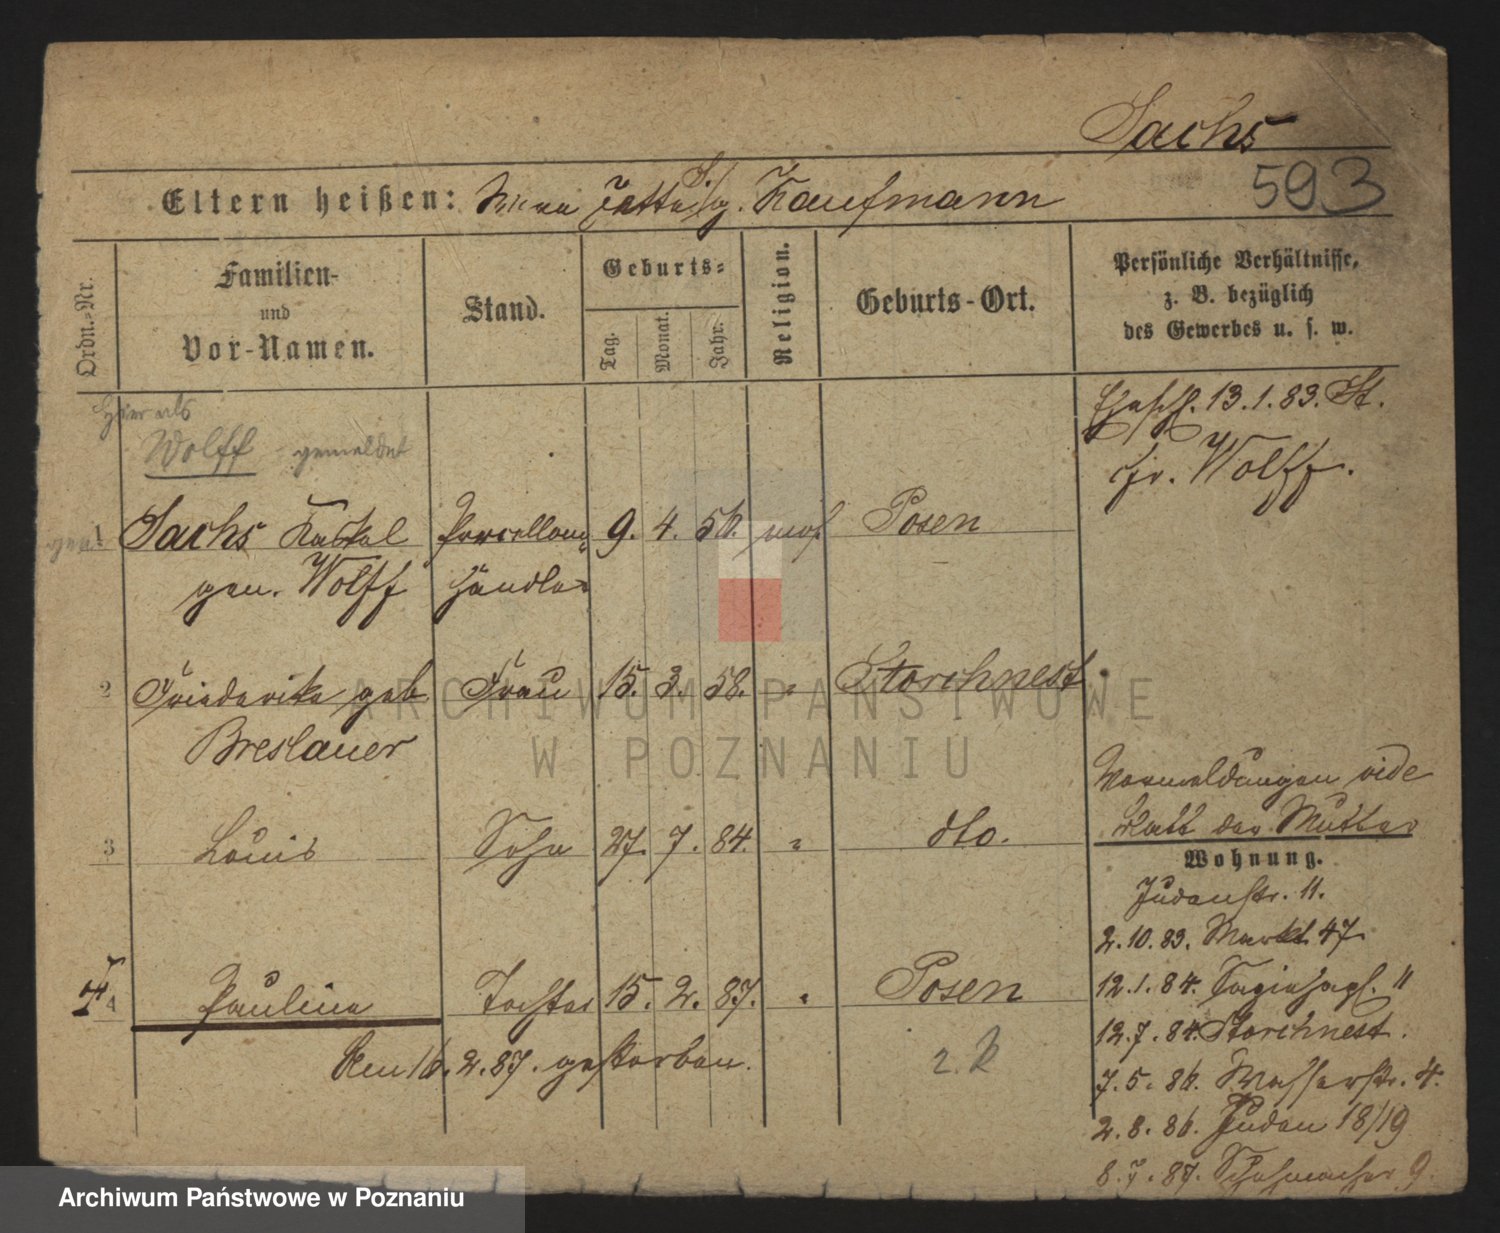 Sachs
593
Eltern heißen: Jette g. Kaufmann
Ordn.-Nr.
Familien-
und
Vor-Namen.
Stand.
Geburts-
Tag.
Monat.
Jahr.
Religion.
Geburts-Ort.
Persönliche Verhältnisse,
z. B. bezüglich
des Gewerbes u. s. w.
Hier als
Wolff gemeldet
Ehesch. 13.1.83. St.
fr. Wolff.
1 Sachs Kaskel Porcellan 9. 4. 56. mos. Posen
gen. Wolff händler
2 Friederike geb. Frau 15. 3. 58. " Storchnest
Breslauer
Vormeldungen vide
Blatt der Mutter
3 Louis Sohn 27. 7. 84. " dto.
Wohnung.
Judenstr. 11.
2.10.83. Markt 47
4 Pauline Tochter 15. 2. 87. " Posen
12.1.84. 11
12.7.84. Storchnest.
Den 16.2.87. gestorben.
7.5.86. Wasserstr. 4.
2.8.86. Juden 18/19
8.7.87. Schuhmacher 9.
ARCHIWUM PAŃSTWOWE
W POZNANIU
Archiwum Państwowe w Poznaniu